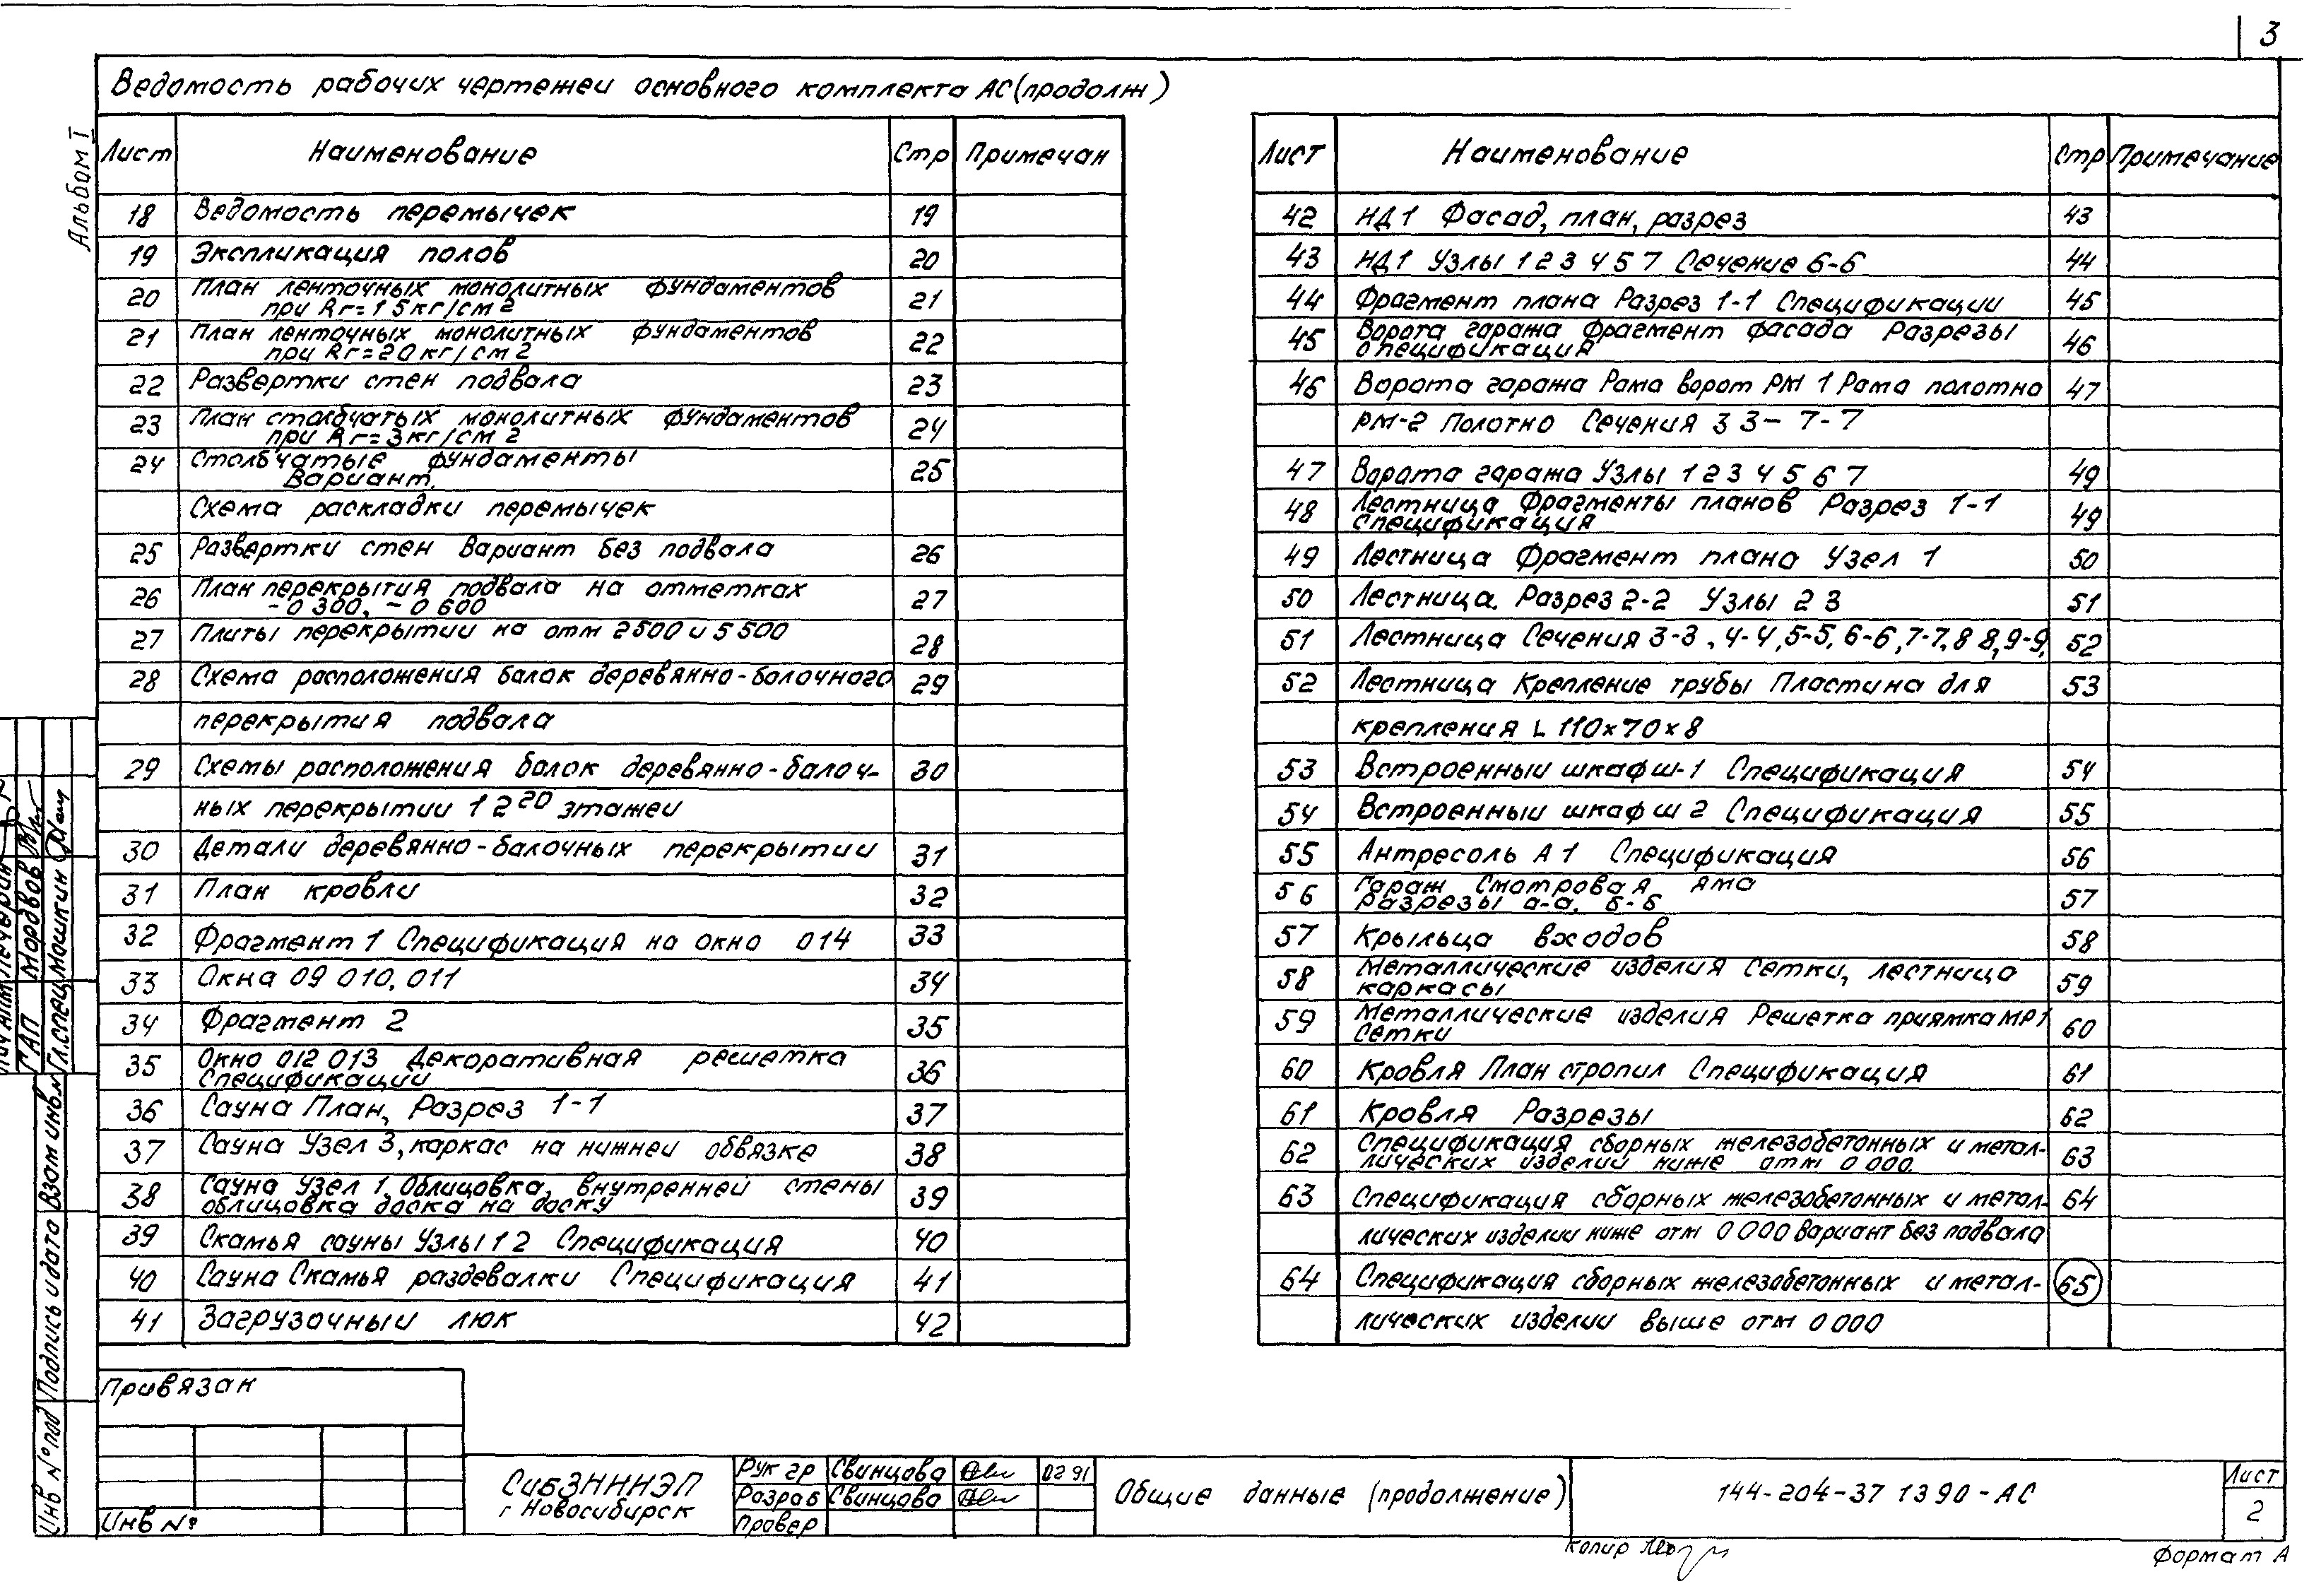 3
Альбом I
Ведомость рабочих чертежей основного комплекта АС (продолж)
Лист Наименование Стр Примечан
18 Ведомость перемычек 19
19 Экспликация полов 20
20 План ленточных монолитных фундаментов 21
при Rг=1 5 кг/см 2
21 План ленточных монолитных фундаментов 22
при Rг=2 0 кг/см 2
22 Развертки стен подвала 23
23 План столбчатых монолитных фундаментов 24
при Rг=3 кг/см 2
24 Столбчатые фундаменты 25
Вариант.
Схема раскладки перемычек
25 Развертки стен Вариант без подвала 26
26 План перекрытия подвала на отметках 27
-0 300, -0 600
27 Плиты перекрытии на отм 2500 и 5 500 28
28 Схема расположения балок деревянно-балочного 29
перекрытия подвала
29 Схемы расположения балок деревянно-балоч- 30
ных перекрытии 1 2 го этажей
30 Детали деревянно-балочных перекрытии 31
31 План кровли 32
32 Фрагмент 1 Спецификация на окно 014 33
33 Окна 09 010, 011 34
34 Фрагмент 2 35
35 Окно 012 013 Декоративная решетка 36
Спецификации
36 Сауна План, Разрез 1-1 37
37 Сауна Узел 3, каркас на нижней обвязке 38
38 Сауна Узел 1. Облицовка внутренней стены 39
облицовка доска на доску
39 Скамья сауны Узлы 1 2 Спецификация 40
40 Сауна Скамья раздевалки Спецификация 41
41 Загрузочный люк 42
Лист Наименование Стр Примечание
42 НД 1 Фасад, план, разрез 43
43 НД 1 Узлы 1 2 3 4 5 7 Сечение 6-6 44
44 Фрагмент плана Разрез 1-1 Спецификации 45
45 Ворота гаража Фрагмент фасада Разрезы 46
спецификация
46 Ворота гаража Рама ворот РМ 1 Рама полотна 47
РМ-2 Полотно Сечения 3 3 - 7-7
47 Ворота гаража Узлы 1 2 3 4 5 6 7 49
48 Лестница Фрагменты планов Разрез 1-1 49
спецификация
49 Лестница Фрагмент плана Узел 1 50
50 Лестница. Разрез 2-2 Узлы 2 3 51
51 Лестница Сечения 3-3, 4-4, 5-5, 6-6, 7-7, 8 8, 9-9, 52
52 Лестница Крепление трубы Пластина для 53
крепления L 110×70×8
53 Встроенный шкаф ш-1 Спецификация 54
54 Встроенный шкаф ш 2 Спецификация 55
55 Антресоль А 1 Спецификация 56
56 Гараж Смотровая яма 57
Разрезы а-а, б-б
57 Крыльца входов 58
58 Металлические изделия Сетки, лестница 59
каркасы
59 Металлические изделия Решетка приямка МР1 60
сетки
60 Кровля План стропил Спецификация 61
61 Кровля Разрезы 62
62 Спецификация сборных железобетонных и метал- 63
лических изделий ниже отм 0 000
63 Спецификация сборных железобетонных и метал- 64
лических изделии ниже отм 0 000 Вариант без подвала
64 Спецификация сборных железобетонных и метал- 65
лических изделии выше отм 0 000
ГАП Мордвов
Гл.спец Мошкин
Инв № подл Подпись и дата Взам инв №
Привязан
Инв №
СибЗНИИЭП
г Новосибирск
Рук гр Свинцова 02 91
Разраб Свинцова
Провер
Общие данные (продолжение)
144-204-37 13 90 - АС
Лист
2
Копир
Формат А